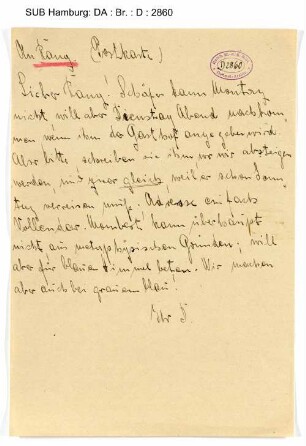 SUB Hamburg: DA : Br. : D : 2860
An Rang (Postkarte)
D 2860
Lieber Rang! Schäfer kann Montag
nicht will aber Dienstag Abend nachkom,
men wenn ihm der Gasthof angegeben wird
Also bitte schreiben sie ihm wo wir absteigen
werden, und zwar gleich, weil er schon Sonn,
tag verreisen muß. Adresse einfach
Vallendar. Mombert kann überhaupt
nicht aus metaphysischen Gründen, will
aber für blauen Himmel beten. Wir machen
aber auch bei grauem blau!
Ihr F.